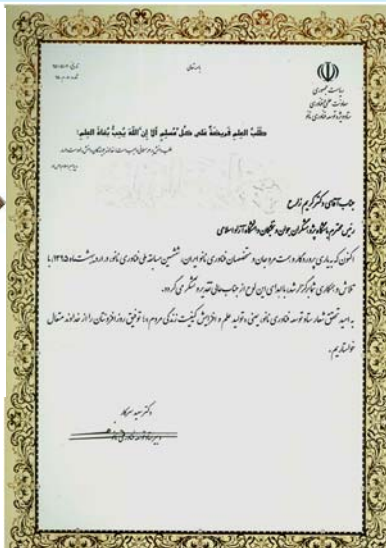 باسمه تعالی
ریاست جمهوری
معاونت علمی و فناوری
ستاد ویژه توسعه فناوری نانو
طَلَبُ العِلمِ فَریضَةٌ عَلی کُلِّ مُسلِمٍ اَلا اِنَّ اللهَ یُحِبُّ بُغاةَ العِلمِ؛
جناب آقای دکتر کریم زارع
رئیس محترم باشگاه پژوهشگران جوان و نخبگان دانشگاه آزاد اسلامی
اکنون که به یاری پروردگار و همت مروجان و متخصصان فناوری نانو ایران، ششمین مسابقه ملی فناوری نانو در اردیبهشت‌ماه ۱۳۹۵ با
تلاش و همکاری شما برگزار شد، با اهدای این لوح از جناب‌عالی تقدیر و تشکر می‌گردد.
به امید تحقق شعار ستاد توسعه فناوری نانو، یعنی «تولید علم و افزایش کیفیت زندگی مردم»، توفیق روزافزونتان را از خداوند متعال
خواستاریم.
دکتر سعید سرکار
دبیر ستاد توسعه فناوری نانو